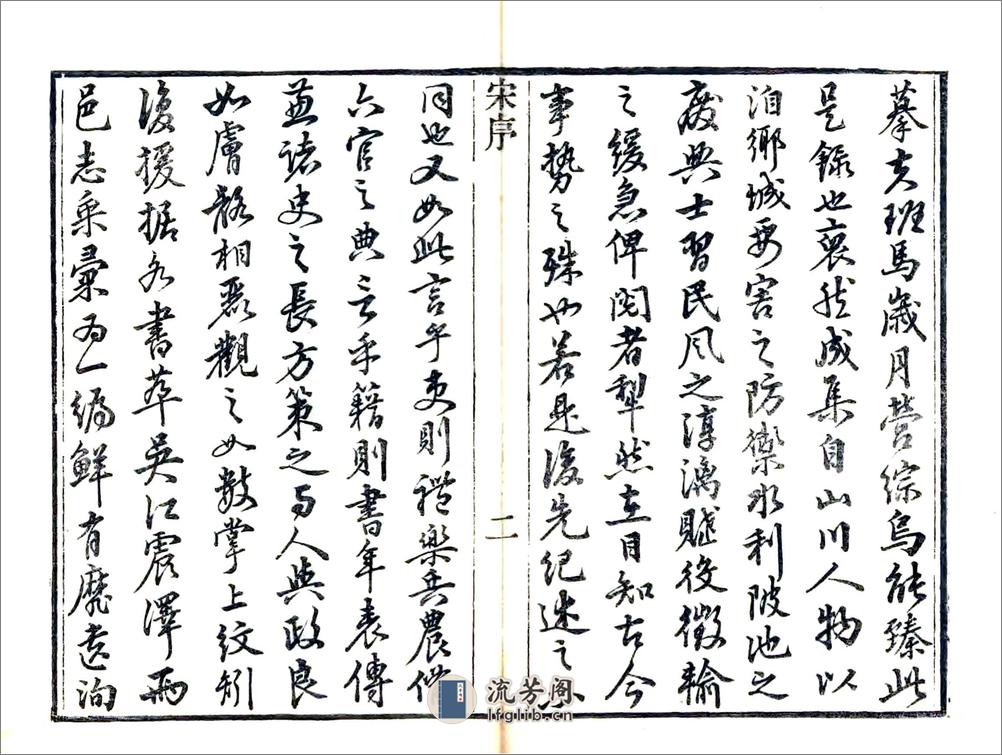 摹文班馬歲月營綜烏能臻此
是錄也裒然成集自山川人物以
洎鄉城要害之防禦水利陂池之
廢興士習民風之淳漓賦役徵輸
之緩急俾閱者犂然在目知古今
事勢之殊也若是後先紀述之不
宋序
二
同也又如此言乎吏則禮樂兵農備
六官之典言乎籍則書年表傳
兼諸史之長方策之與人與政良
如膚骼相麗觀之如數掌上紋矧
復援據各書萃吳江震澤兩
邑志乘彙為一編鮮有靡遺洵
流芳阁
lfglib.cn